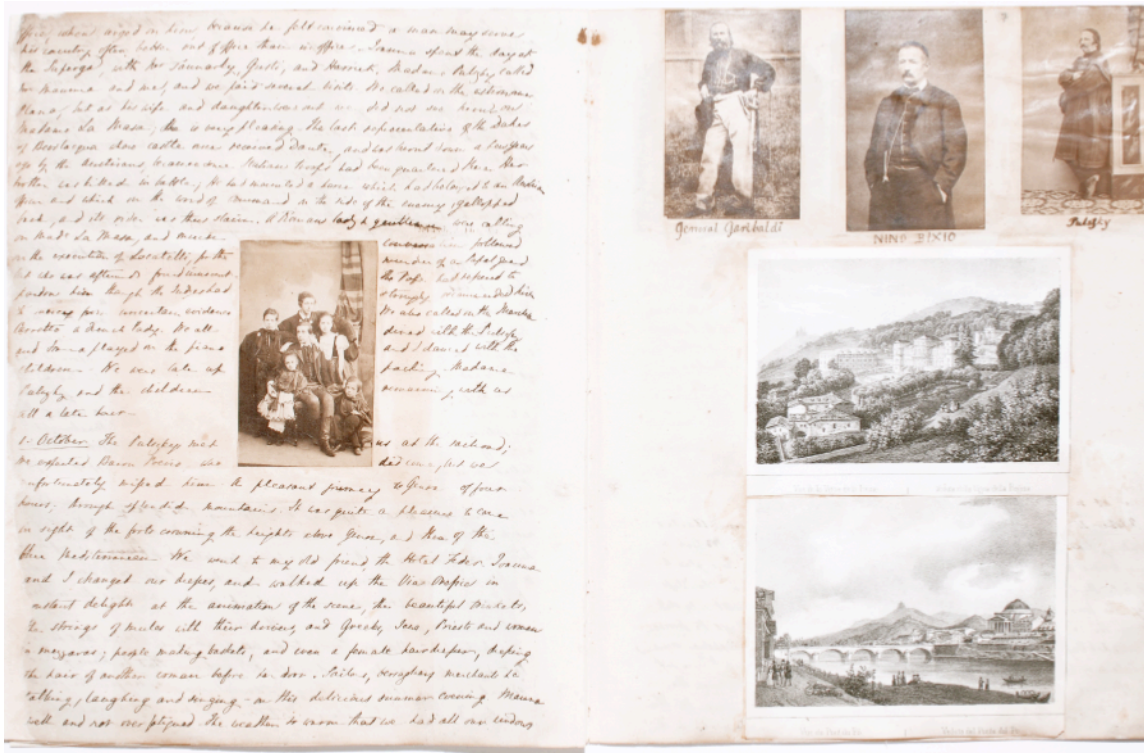 office, when urged on him, because he felt convinced a man may serve
his country often better out of office than in office. Joanna spent the day at
the Superga, with Giusti, and Harriet. Madame Pulszky called
for Mamma and me, and we paid several visits. We called on the astronomer
Plana, but as his wife and daughter were out we did not see him; on
Madame La Masa; she is very pleasing. The last representative of the Dukes
of Bevilacqua whose castle once received Dante, and was burnt down
ago by the Austrians, because Italian troops had been quartered there. Her
brother was killed in battle; He had mounted a horse which had belonged to an Austrian
officer and which on the word of command in the ride of the enemy galloped
back, and its rider was thus slain. A Roman lady & gentleman were calling
on Made La Masa, and much
conversation followed
on the execution of Locatelli, for the
murder of a Papal
but who was afterwards found innocent.
the Pope had refused to
pardon him though the Judges had
strongly recommended him
to mercy from uncertain evidence
We also called on the
a French lady. We all
dined with the Pulszkys
and Joanna played on the piano
and I danced with the
children. We were late up
packing, Madame
Pulszky and the children
remaining with us
till a late hour.
1. October. The Pulszkys met
us at the railroad;
we expected Baron Poerio, who
had come, but was
unfortunately missed him. the pleasant journey to Genoa of four
hours, through splendid mountains. It was quite a pleasure to come
in sight of the forts crowning the heights above Genoa, and then of the
blue Mediterranean. We went to my old friend the Hotel Feder. Joanna
and I changed our dresses, and walked up the Via Orefici in
constant delight at the animation of the scene, the beautiful trinkets,
the strings of mules with their drivers, and Greeks, Jews, Priests and women
in mezzaros; people making baskets, and even a female hairdresser, dressing
the hair of another woman before her door. Sailors, merchants &c
talking, laughing and singing - on this delicious summer evening Mamma
well and not over fatigued. The weather so warm that we had all our windows
General Garibaldi
NINO BIXIO
Pulszky